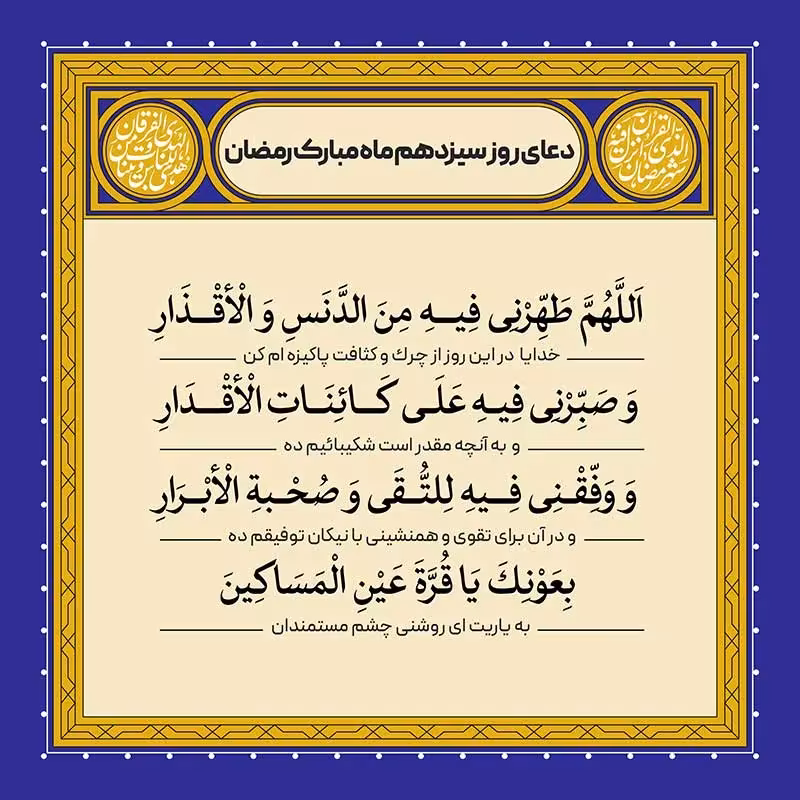 دعای روز سیزدهم ماه مبارک رمضان
شهر رمضان الذی انزل فیه القرآن
هدی للناس و بینات من الهدی و الفرقان
اَللَّهُمَّ طَهِّرْنِی فِیهِ مِنَ الدَّنَسِ وَ الْأَقْذَارِ
خدایا در این روز از چرك و كثافت پاكیزه ام كن
وَ صَبِّرْنِی فِیهِ عَلَی كَائِنَاتِ الْأَقْدَارِ
و به آنچه مقدر است شكیبائیم ده
وَ وَفِّقْنِی فِیهِ لِلتُّقَی وَ صُحْبةِ الْأَبْرَارِ
و در آن برای تقوی و همنشینی با نیكان توفیقم ده
بِعَوْنِكَ یَا قُرَّةَ عَیْنِ الْمَسَاكِینَ
به یاریت ای روشنی چشم مستمندان